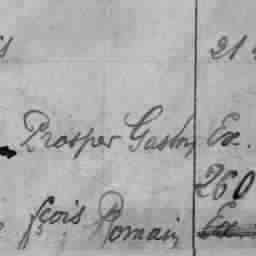 21
Prosper Gaston Ex.
260
fçois Romain Ex